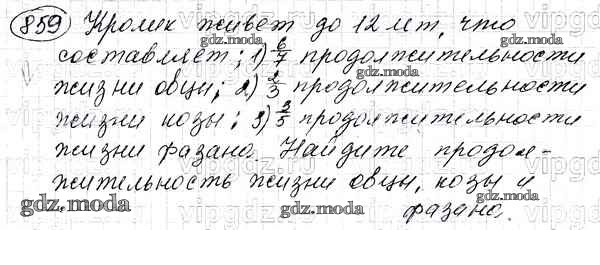 859) Кролик живёт до 12 лет, что
составляет: 1) 6/7 продолжительности
жизни овцы; 2) 2/3 продолжительности
жизни козы; 3) 2/5 продолжительности
жизни фазана. Найдите продол-
жительность жизни овцы, козы и
фазана.
gdz.moda
gdz.moda
gdz.moda
gdz.moda
gdz.moda
gdz.moda
gdz.moda